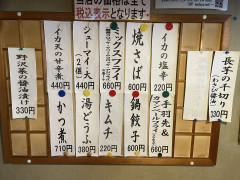 当店の価格は全て
税込表示となります。
長芋の千切り
(わさび醤油)
330円
イカの塩辛
220円
焼きそば
600円
ミックスフライ
660円
シューマイ(大)
(4個)
440円
イカ天の甘辛煮
440円
手羽先&
600円
鍋餃子
600円
キムチ
220円
湯どうふ
380円
かつ煮
710円
野沢菜の醤油漬け
330円